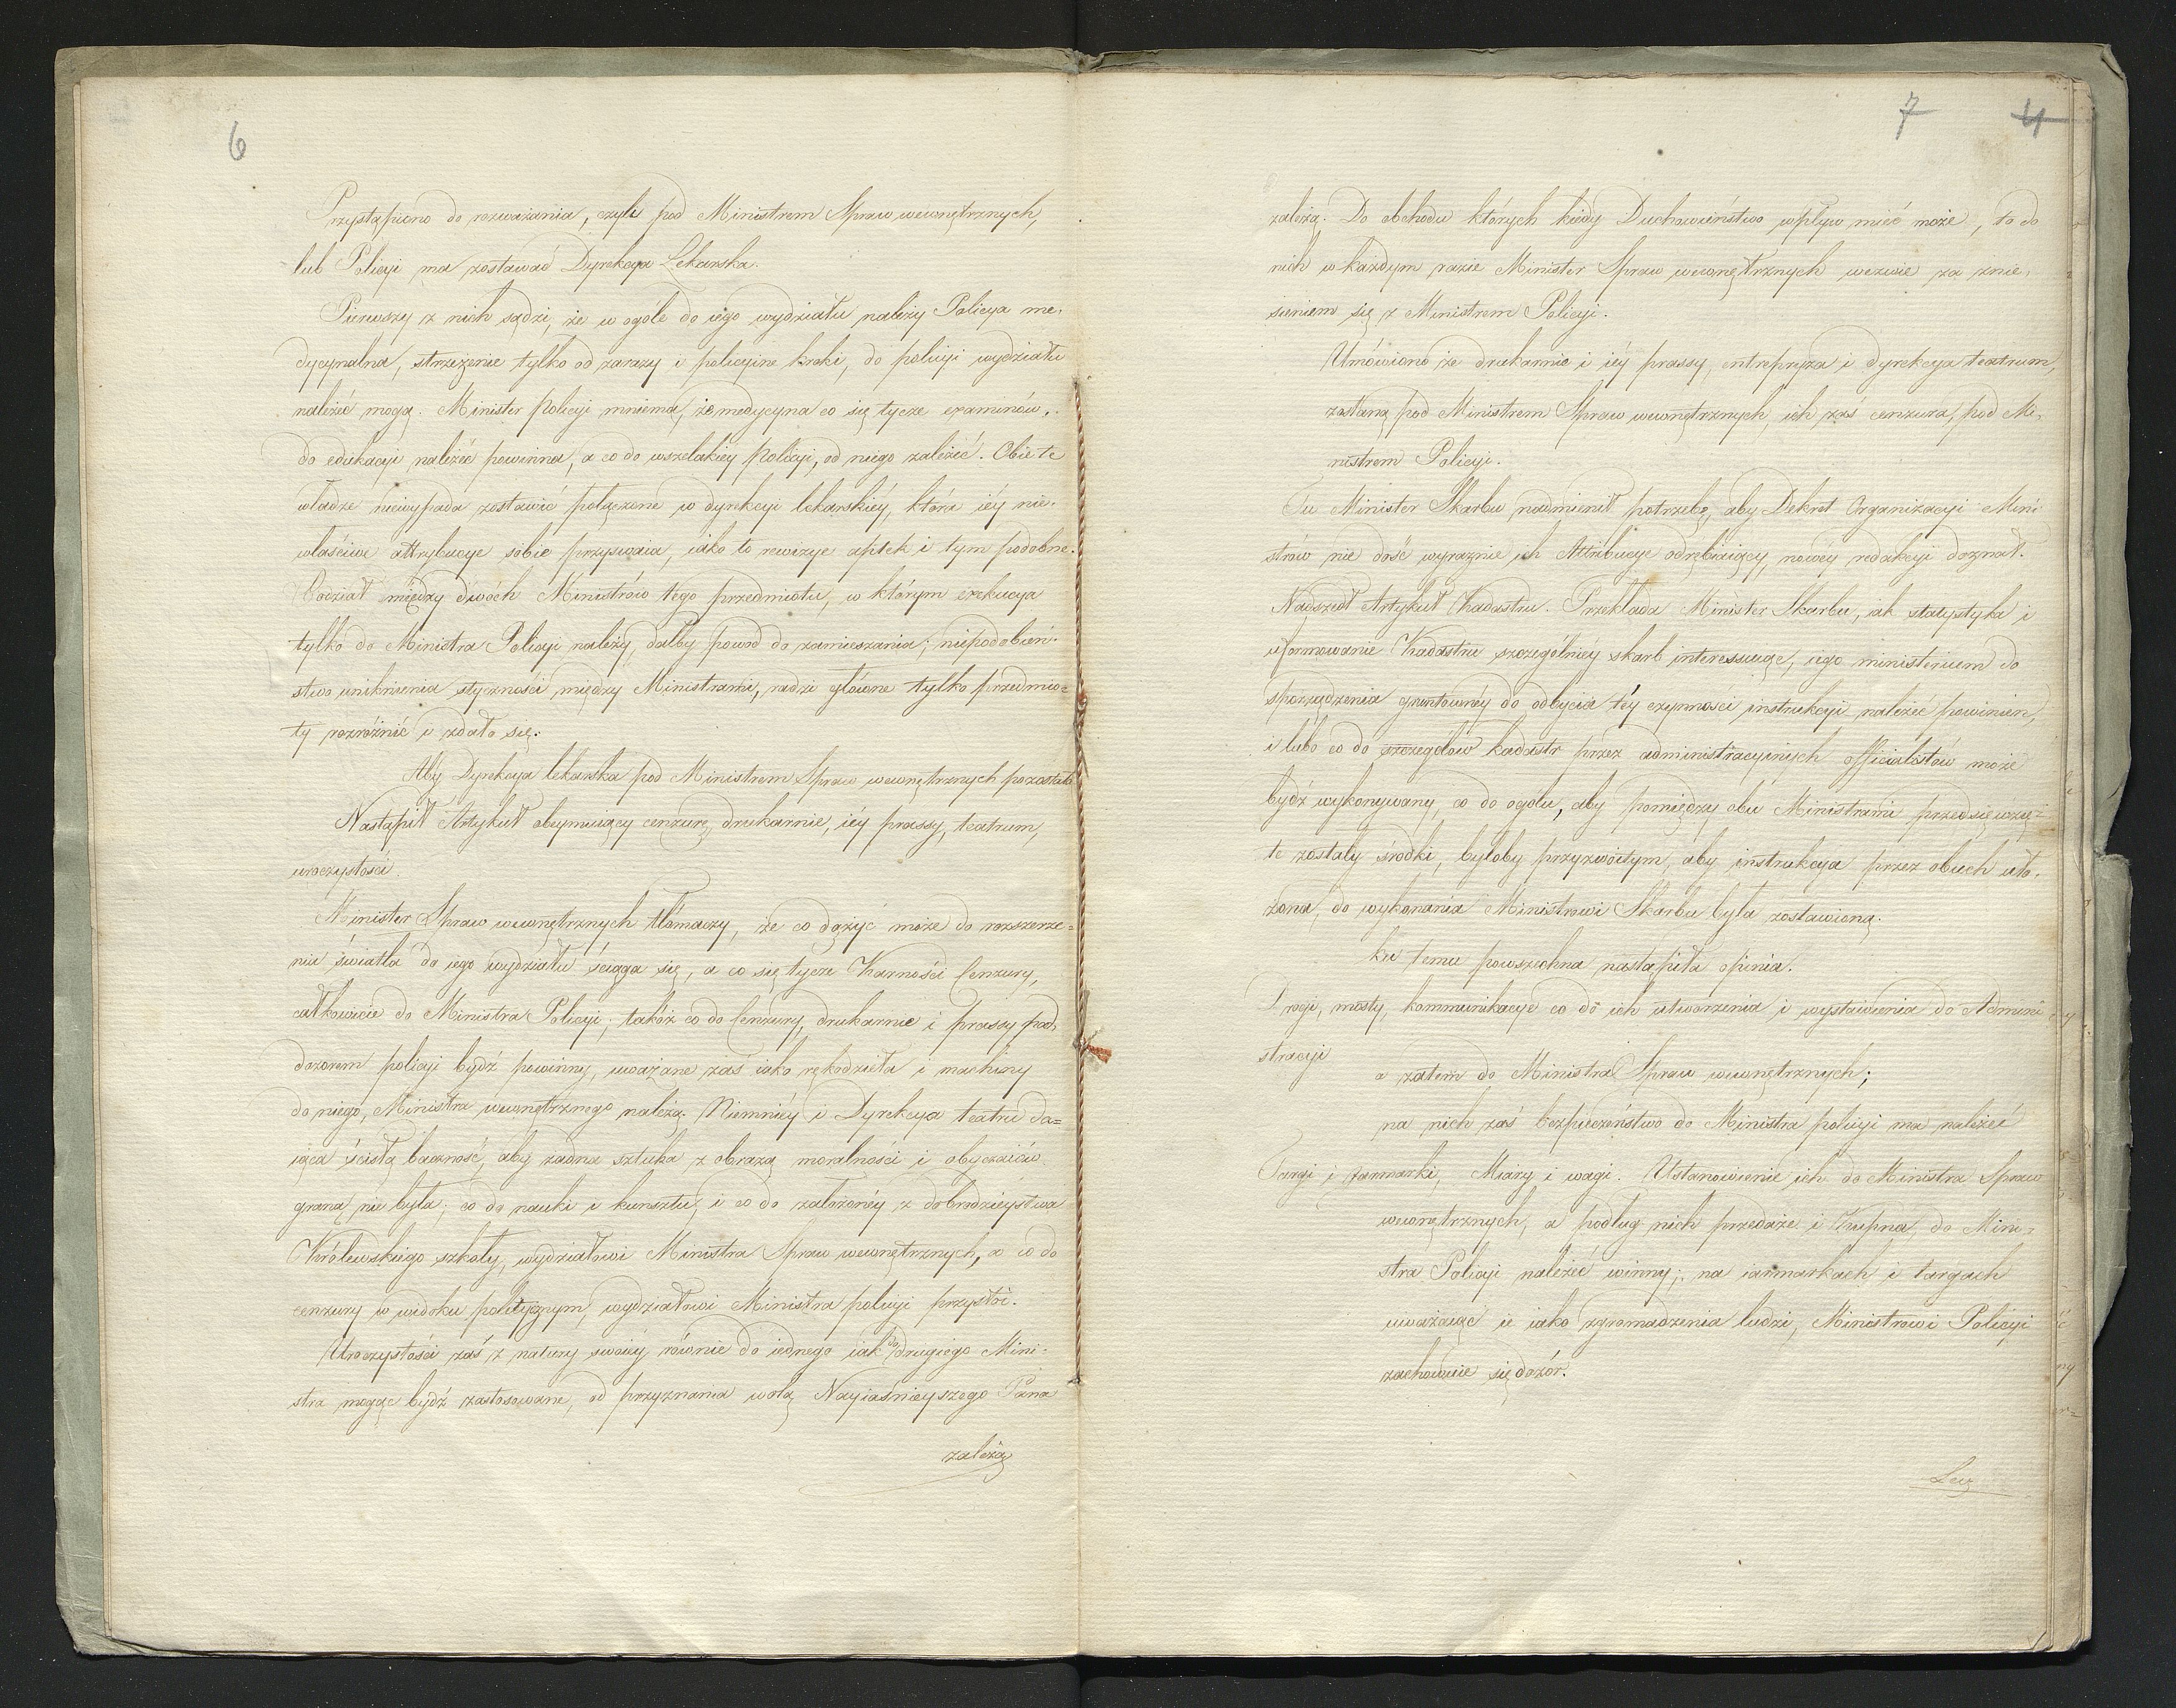 6
Przystąpiono do rozważania, czyli pod Ministrem Spraw wewnętrznych,
lub Policyi ma zostawać Dyrekcya Lekarska.
Pierwszy z nich sądzi, że w ogóle do iego wydziału należy Policya me-
dycynalna, strzeżenie tylko od zarazy i policyine kroki, do policyi wydziału
należeć mogą. Minister policyi mniema, że medycyna co się tycze examinów,
do edukacyi należeć powinna, a co do wszelakiey policyi, od niego zależeć. Obie te
władze niewypada zostawić połączone w dyrekcyi lekarskiéy, która iéy nie-
właściwe attrybucye sobie przyswaia, iako to rewizye aptek i tym podobne.
Podział między dwóch Ministrów tego przedmiotu, w którym exekucya
tylko do Ministra Policyi należy, dałby powod do zamieszania; niepodobień-
stwo uniknienia styczności między Ministrami, radzi główne tylko przedmio=
ty rozróżnić i zdało się:
Aby Dyrekcya lekarska pod Ministrem Spraw wewnętrznych pozostała
Nastąpił Artykuł obeymuiący cenzurę, drukarnie, iéy prassy, teatrum,
uroczystości.
Minister Spraw wewnętrznych tłómaczy, że co dążyć może do rozszerze=
nia światła do iego wydziału ściąga się, a co się tycze Karności Cenzury,
całkowicie do Ministra Policyi; takóż co do Cenzury, drukarnie i prassy pod
dozorem policyi bydź powinny, uważane zaś iako rękodzieła i machiny
do niego, Ministra wewnętrznego należą. Niemniéy i Dyrekcya teatru da=
iąca ścisłą baczność, aby żadna sztuka z obrazą moralności i obyczaiów
graną nie była; co do nauki i kunsztu, i co do założonéy z dobrodzieystwa
Królewskiego szkoły, wydziałowi Ministra Spraw wewnętrznych, a co do
cenzury w widoku politycznym, wydziałowi Ministra policyi przystoi.
Uroczystości zaś z natury swoiéy równie do iednego iak do drugiego Mini-
stra mogąc bydź zastosowane, od przyznania wolą Nayiaśnieyszego Pana
zależą
7 4
zależą. Do obchodu których kiedy Duchowieństwo wpływ mieć może, to do
nich w każdym razie Minister Spraw wewnętrznych wezwie za znie-
sieniem się z Ministrem Policyi.
Umówiono że drukarnie i iéy prassy, entrepryza i dyrekcya teatrum,
zostaną pod Ministrem Spraw wewnętrznych, ich zaś cenzura, pod Mi-
nistrem Policyi.
Tu Minister Skarbu nadmienił potrzebę, aby Dekret Organizacyi Mini
strów nie dość wyraznie ich Attribucye odrębiaiący, nowéy redakcyi doznał.
Nadszedł Artykuł Kadastru. Przekłada Minister Skarbu, iak statystyka i
uformowanie Kadastru szczególniéy skarb interessuiąc, iego ministerium do
sporządzenia gruntownéy do odbycia téy czynności instrukcyi należeć powinien,
i lubo co do szczegółów kadastr przez administracyinych officialistów może
bydź wykonywany, co do ogółu, aby pomiędzy obu Ministrami przedsięwzię-
te zostały środki, byłoby przyzwoitym, aby instrukcya przez obuch uło-
żona, do wykonania Ministrowi Skarbu była zostawioną.
Ku temu powszechna nastąpiła opinia.
Drogi, mosty, kommunikacye co do ich utworzenia i wystawienia do Admini
stracyi
a zatem do Ministra Spraw wewnętrznych;
na nich zaś bezpieczeństwo do Ministra policyi ma należeć
Targi i Jarmarki, Miary i wagi. Ustanowienie ich do Ministra Spraw
wewnętrznych, a podług nich przedaże i Kupna, do Mini-
stra Policyi należeć winny; na iarmarkach i targach
uważaiąc ie iako zgromadzenia ludzi, Ministrowi Policyi
zachowuie się dozór.
Lecz